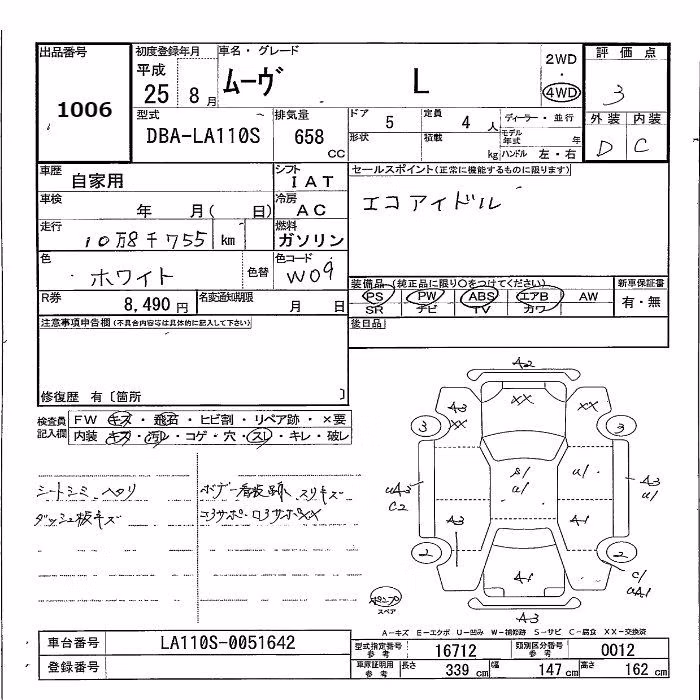 出品番号 初度登録年月 車名・グレード 評価点
1006
平成 25 8月 ムーヴ L 2WD・4WD 3
型式 排気量 ドア 5 定員 4人 ディーラー・並行 外装 内装
DBA-LA110S 658cc 形状 積載 kg モデル年式 年 ハンドル 左・右 D C
車歴 自家用 シフト IAT セールスポイント(正常に機能するものに限ります)
車検 年 月( 日) 冷房 AC エコアイドル
走行 10万8千755 km 燃料 ガソリン
色 ホワイト 色替 色コード W09
装備品(純正品に限り○をつけてください) 新車保証書
R券 8,490円 名変通知期限 月 日 PS PW ABS エアB AW 有・無
SR ナビ TV カワ
注意事項申告欄(不具合内容等は具体的に記入して下さい) 後日品
修復歴 有〔箇所 〕
検査員記入欄 FW キズ・飛石・ヒビ割・リペア跡・×要
内装 キズ・汚レ・コゲ・穴・スレ・キレ・破レ
A2
A3 XX XX XX
3 3
S/ U/ U/
UA3 C2 A3 U/
A3 A1
2 2
A1 C/ UA1
A3
シートシミ ヘタリ ボデー看板跡 スリキズ
ダッシュ板キズ コアサポ・ロアサポXX
ポンプ
スペア
A-キズ E-エクボ U-凹み W-補修跡 S-サビ C-腐食 XX-交換済
車台番号 LA110S-0051642 型式指定番号 参考 16712 類別区分番号 参考 0012
登録番号 車庫証明用 参考 長さ 339cm 幅 147cm 高さ 162cm